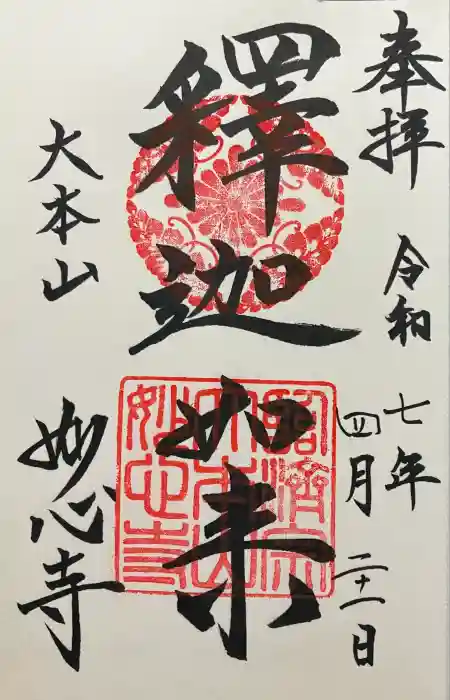 奉拝
令和七年
四月二十一日
釋迦如来
大本山
妙心寺
臨済宗
大本山
妙心寺